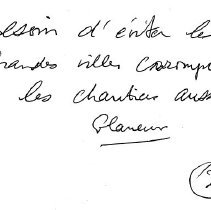 besoin d'éviter les
grandes villes corromp
les chantiers auss
Flaneur